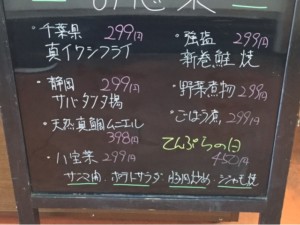 お惣菜
・千葉県 299円
真イワシフライ
・静岡 299円
サバタツタ揚
・天然真鯛ムニエル
398円
・八宝菜 299円
・強塩 299円
新巻鮭 焼
・野菜煮物 299円
・ごぼう煮 299円
てんぷらの日
450円
サンマ肉 ポテトサラダ